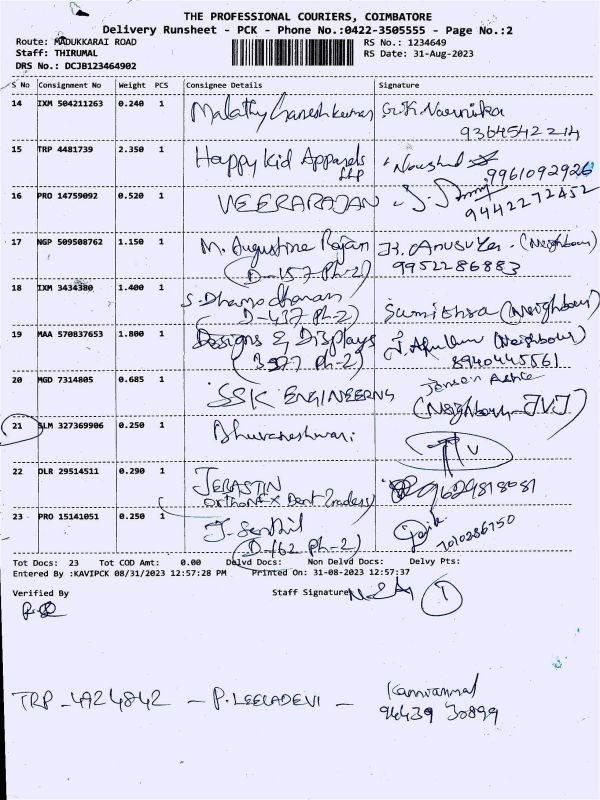 THE PROFESSIONAL COURIERS, COIMBATORE
Delivery Runsheet - PCK - Phone No.:0422-3505555 - Page No.:2
Route: MADUKKARAI ROAD RS No.: 1234649
Staff: THIRUMAL RS Date: 31-Aug-2023
DRS No.: DCJB123464902
S No Consignment No Weight PCS Consignee Details Signature
14 IXM 504211263 0.240 1 Malathy Ganeshkumar G.K Navnika
9364542214
15 TRP 4481739 2.350 1 Happy Kid Apparels Noushad
LLP 9961092926
16 PRO 14759092 0.520 1 VEERARAJAN
9442272452
17 NGP 509508762 1.150 1 M. Augustine Rajan K. Anusuya. (Neighbour)
(D-157 Ph-2) 9952286883
18 IXM 3434380 1.400 1 S. Dhamodharan
(D-437 Ph-2) Sumithra (Neighbour)
19 MAA 570837653 1.800 1 Designs & Displays (Neighbour)
(B 577 Ph-2) 8940445561
20 MGD 7314805 0.685 1 SSK ENGINEERNG
(Neighbour J.V.J.)
21 SLM 327369906 0.250 1 Bhuvaneshwari
22 DLR 29514511 0.290 1 JERASTIN 9629818081
orthont x Dent (Traders)
23 PRO 15141051 0.250 1 J. Senthil
(D-162 Ph-2) 7010286750
Tot Docs: 23 Tot COD Amt: 0.00 Delvd Docs: Non Delvd Docs: Delvy Pts:
Entered By :KAVIPCK 08/31/2023 12:57:28 PM Printed On: 31-08-2023 12:57:37
Verified By Staff Signature
TRP - 4924842 - P. LEELADEVI - Kannammal
94439 30899